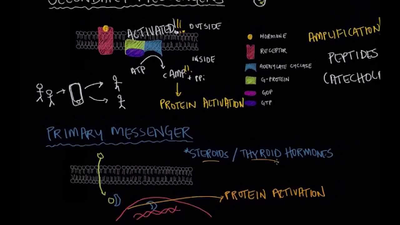 ACTIVATED!!!
OUTSIDE
HORMONE
AMPLIFICATION
RECEPTOR
PEPTIDES
INSIDE
ADENYLATE CYCLASE
ATP
CAMP!!
+ PPi
G-PROTEIN
CATECHOL
GDP
GTP
PROTEIN ACTIVATION
PRIMARY MESSENGER
*STEROIDS / THYROID HORMONES
PROTEIN ACTIVATION